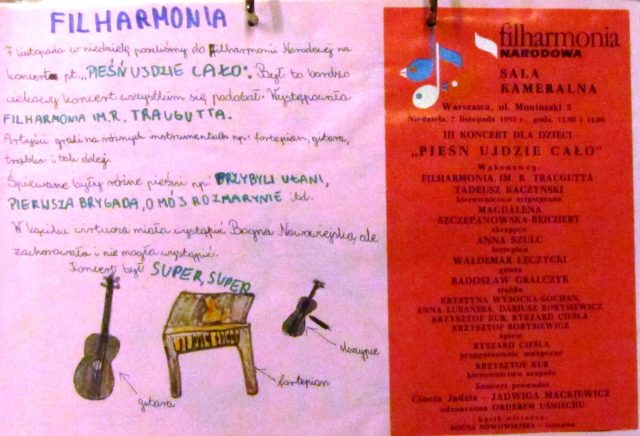 FILHARMONIA
7 listopada w niedzielę poszliśmy do Filharmonii Narodowej na
koncert pt. „PIEŚŃ UJDZIE CAŁO". Był to bardzo
ciekawy koncert wszystkim się podobał. Występowała
FILHARMONIA IM. R. TRAUGUTTA.
Artyści grali na różnych instrumentach np. fortepian, gitara,
trąbka i tak dalej.
Śpiewane były różne pieśni np. PRZYBYLI UŁANI,
PIERWSZA BRYGADA, O MÓJ ROZMARYNIE itd.
W kąciku wirtuoza miała wystąpić Bogna Nowowiejska, ale
zachorowała i nie mogła wystąpić.
Koncert był SUPER, SUPER
gitara
fortepian
skrzypce
filharmonia
NARODOWA
SALA
KAMERALNA
Warszawa, ul. Moniuszki 5
Niedziela, 7 listopada 1993 r., godz. 11.00 i 14.00
III KONCERT DLA DZIECI
„PIEŚŃ UJDZIE CAŁO"
Wykonawcy:
FILHARMONIA IM. R. TRAUGUTTA
TADEUSZ KACZYŃSKI
kierownictwo artystyczne
MAGDALENA
SZCZEPANOWSKA-REICHERT
skrzypce
ANNA SZULC
fortepian
WALDEMAR ŁĘCZYCKI
gitara
RADOSŁAW GRALCZYK
trąbka
KRYSTYNA WYSOCKA-KOCHAN,
ANNA LUBAŃSKA, DARIUSZ BORYSIEWICZ,
KRZYSZTOF KUR, RYSZARD CIEŚLA
KRZYSZTOF BORYSIEWICZ
śpiew
RYSZARD CIEŚLA
przygotowanie muzyczne
KRZYSZTOF KUR
kierownictwo zespołu
Koncert prowadzi
Ciocia Jadzia - JADWIGA MACKIEWICZ
odznaczona ORDEREM UŚMIECHU
kącik wirtuoza:
BOGNA NOWOWIEJSKA - fortepian